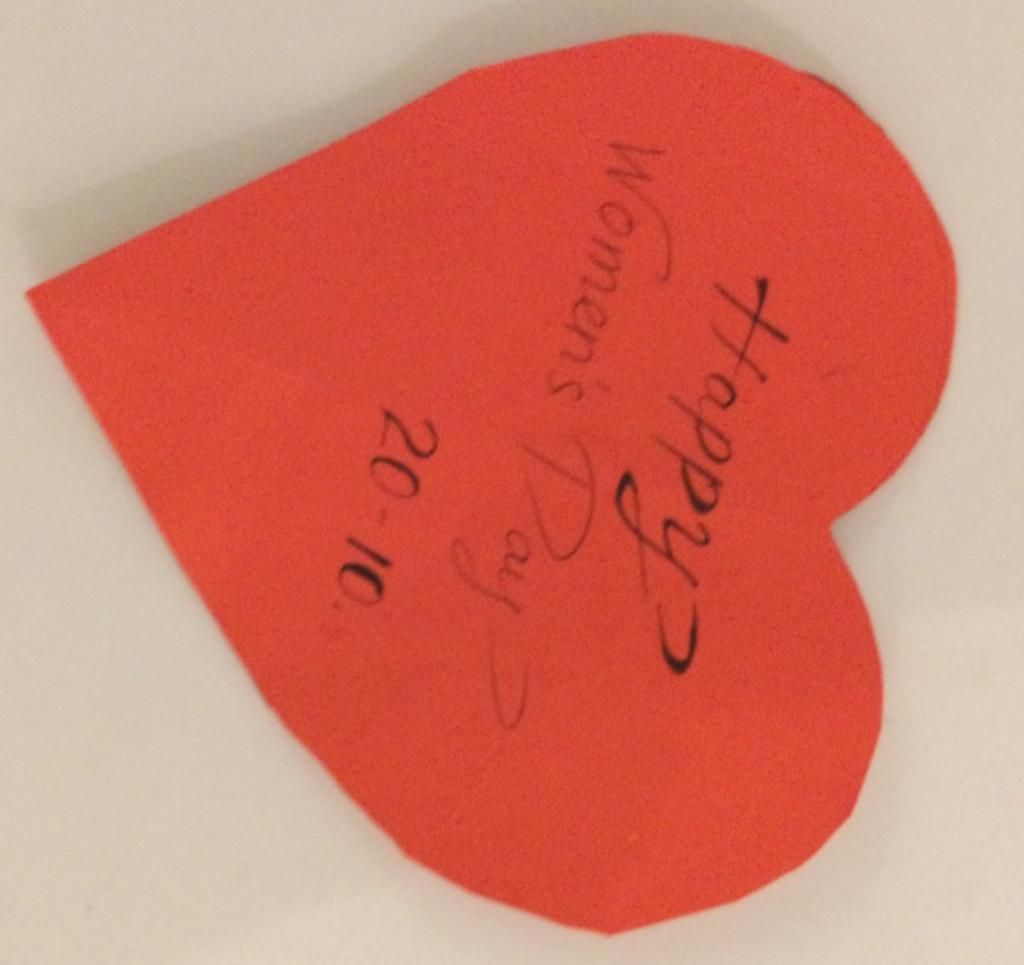 Happy
Women's Day
20-10.